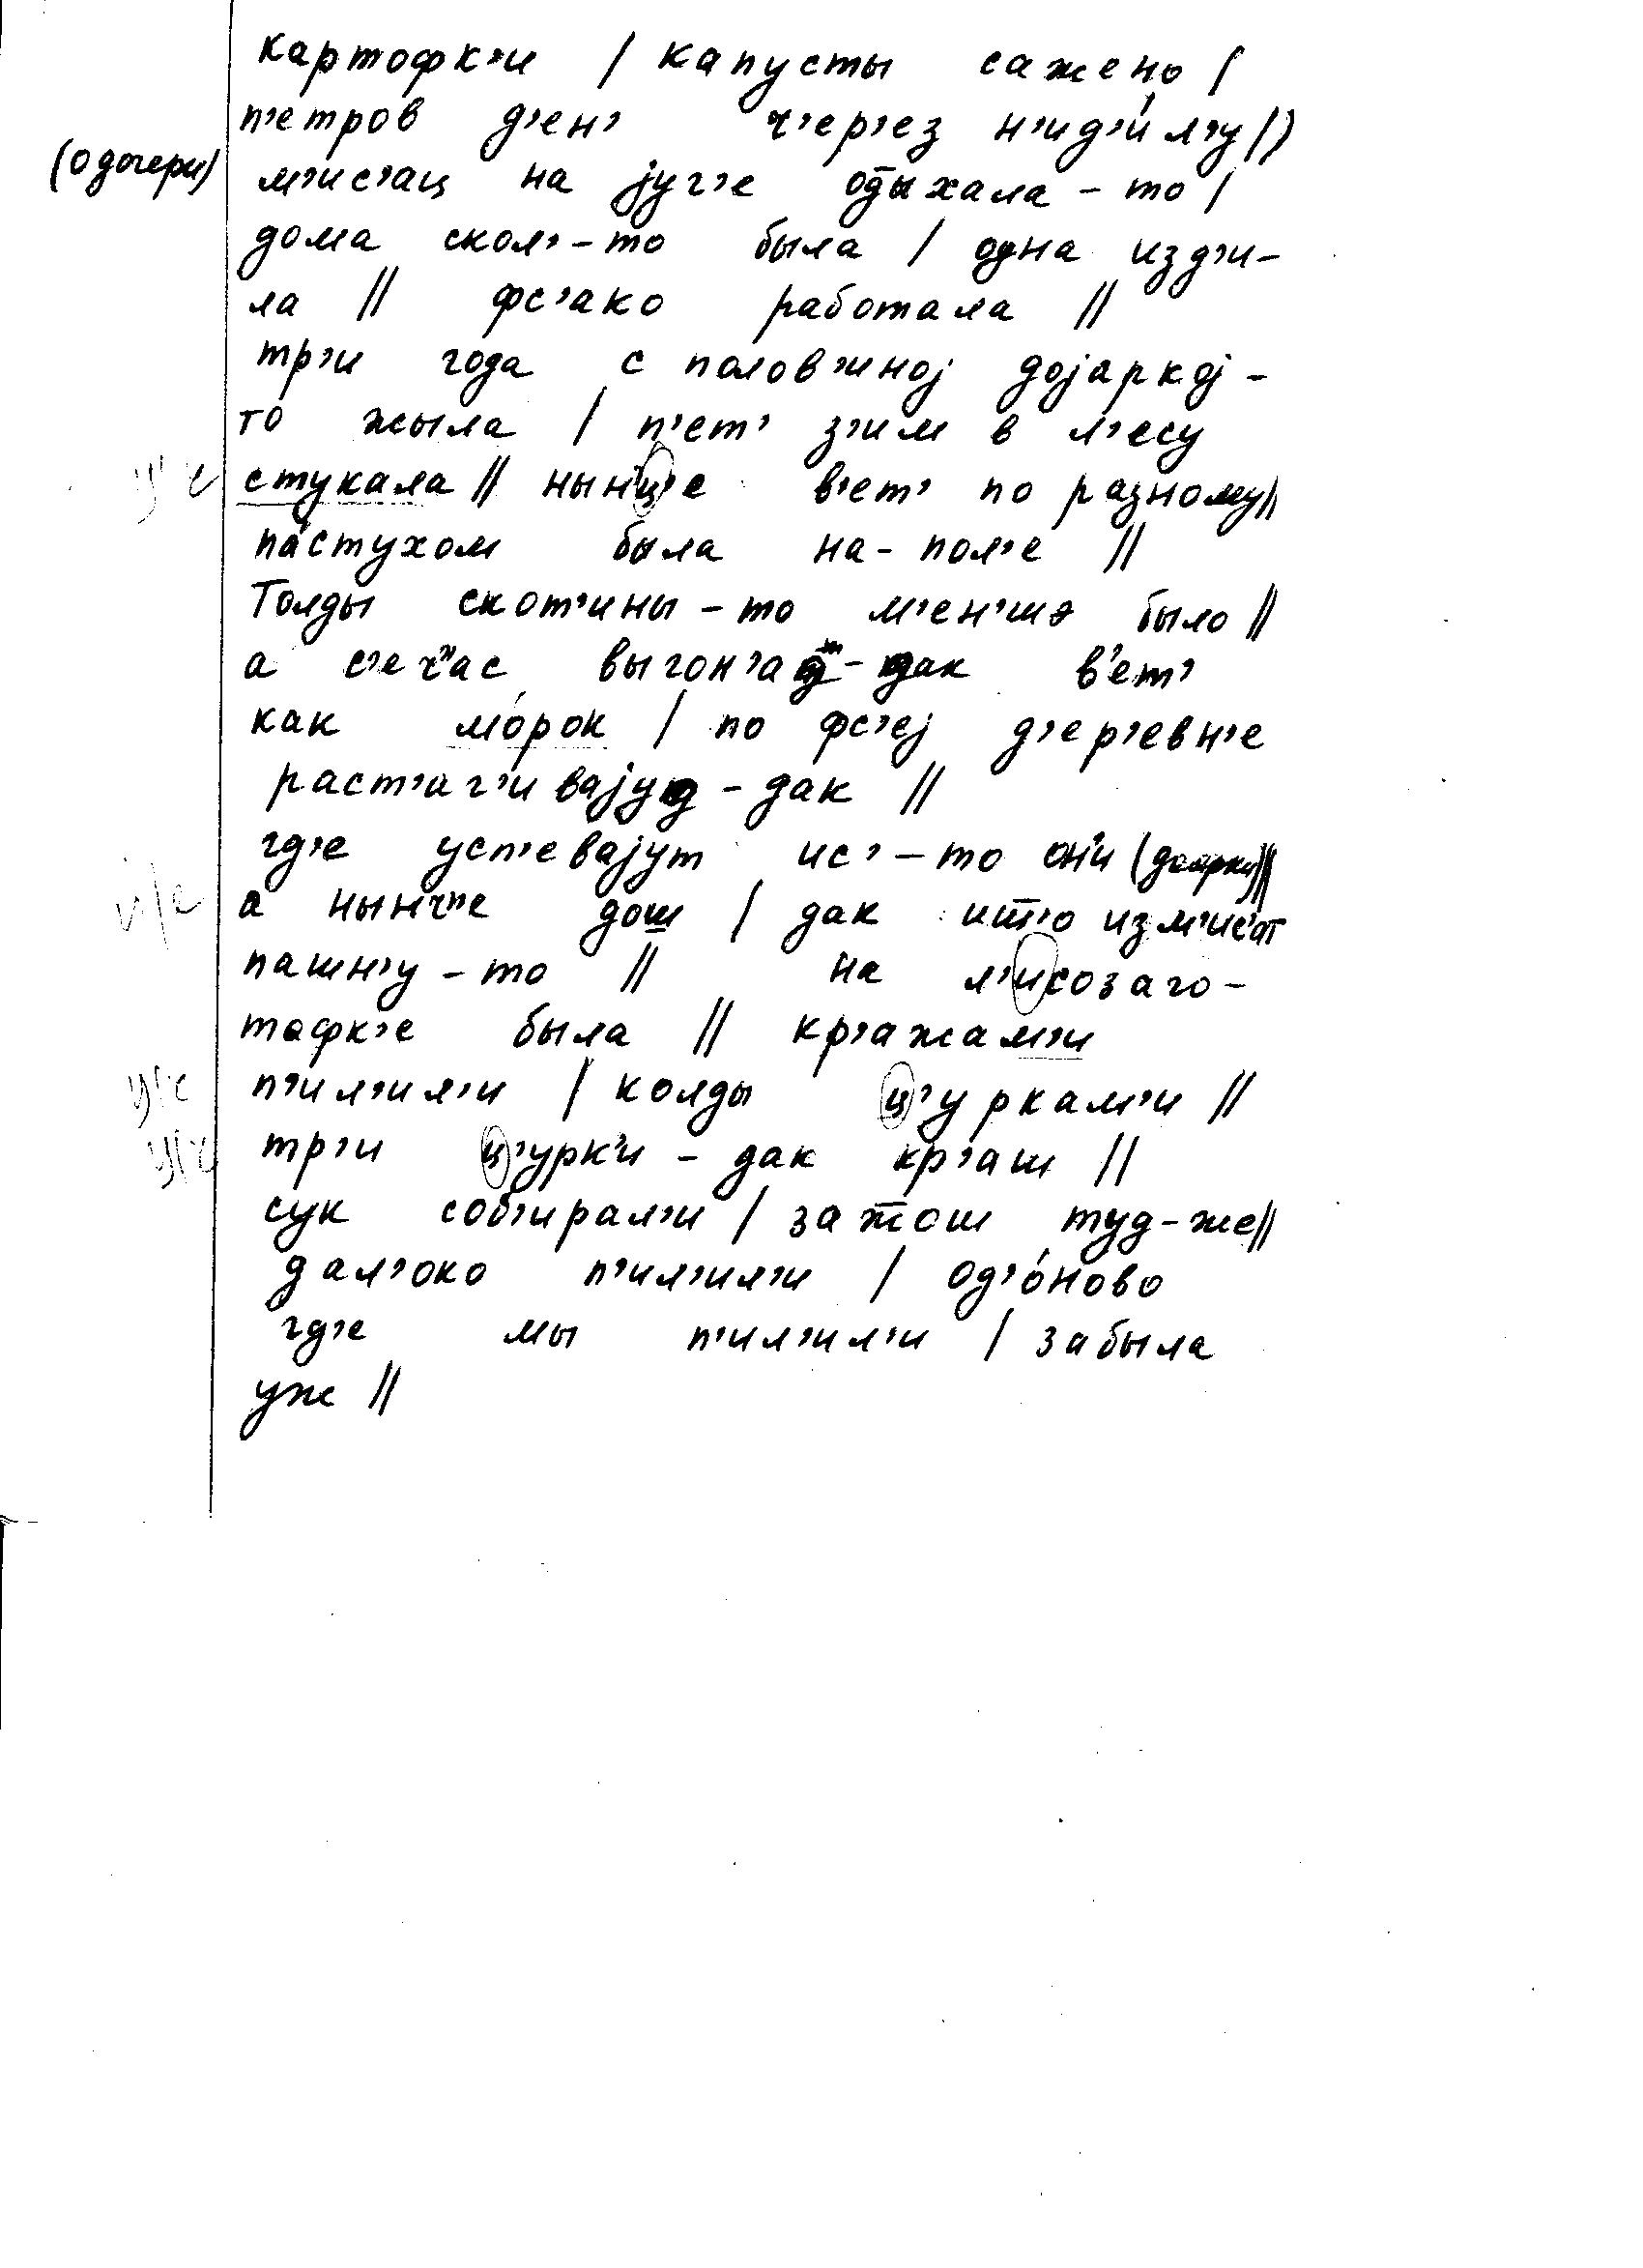 картофк’и / капусты сажено /
п’етров д’ен’ ч’ер’ез н’ид’и́л’у //
(о дочери) м’ис’ац на југ’е од̅ыхала - то /
дома скол’-то была / одна изд’и-
ла // фс’ако работала //
тр’и года с полов’иној дојаркој -
то жыла / п’ет’ з’им в л’есу
стукала // нынц’е в’ет’ по разному //
па́стухом была на- пол’е //
Толды скот’ины - то м’ен’шэ было //
а с’еч”ас выгон’ад - дак в’ет’
как мо́рок / по фс’еј д’ер’евн’е
раст’аг’ивајуд - дак //
гд’е усп’евајут ис’ - то он’и (доярки) //
а нынч”е дош̅ / дак ит̅’о изм’ис’ат
пашн’у - то // на л’исозаго-
тофк’е была // кр’ажам’и
п’ил’ил’и / колды ц’уркам’и //
тр’и ц’урк’и - дак кр’аш //
сук соб’ирал’и / зат̅ош туд-же //
дал’око п’ил’ил’и / од’о́ново
гд’е мы п’ил’ил’и / забыла
уж //